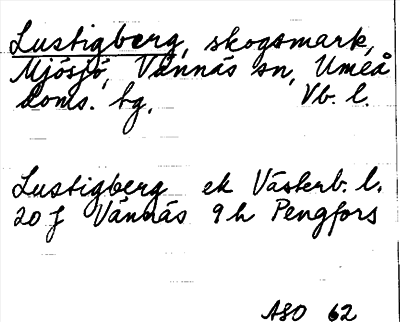 Lustigberg, skogsmark,
Mjösjö, Vännäs sn, Umeå
doms. tg. Vb. l.
Lustigberg ek Västerb. l.
20 J Vännäs 9h Pengfors
ASO 62